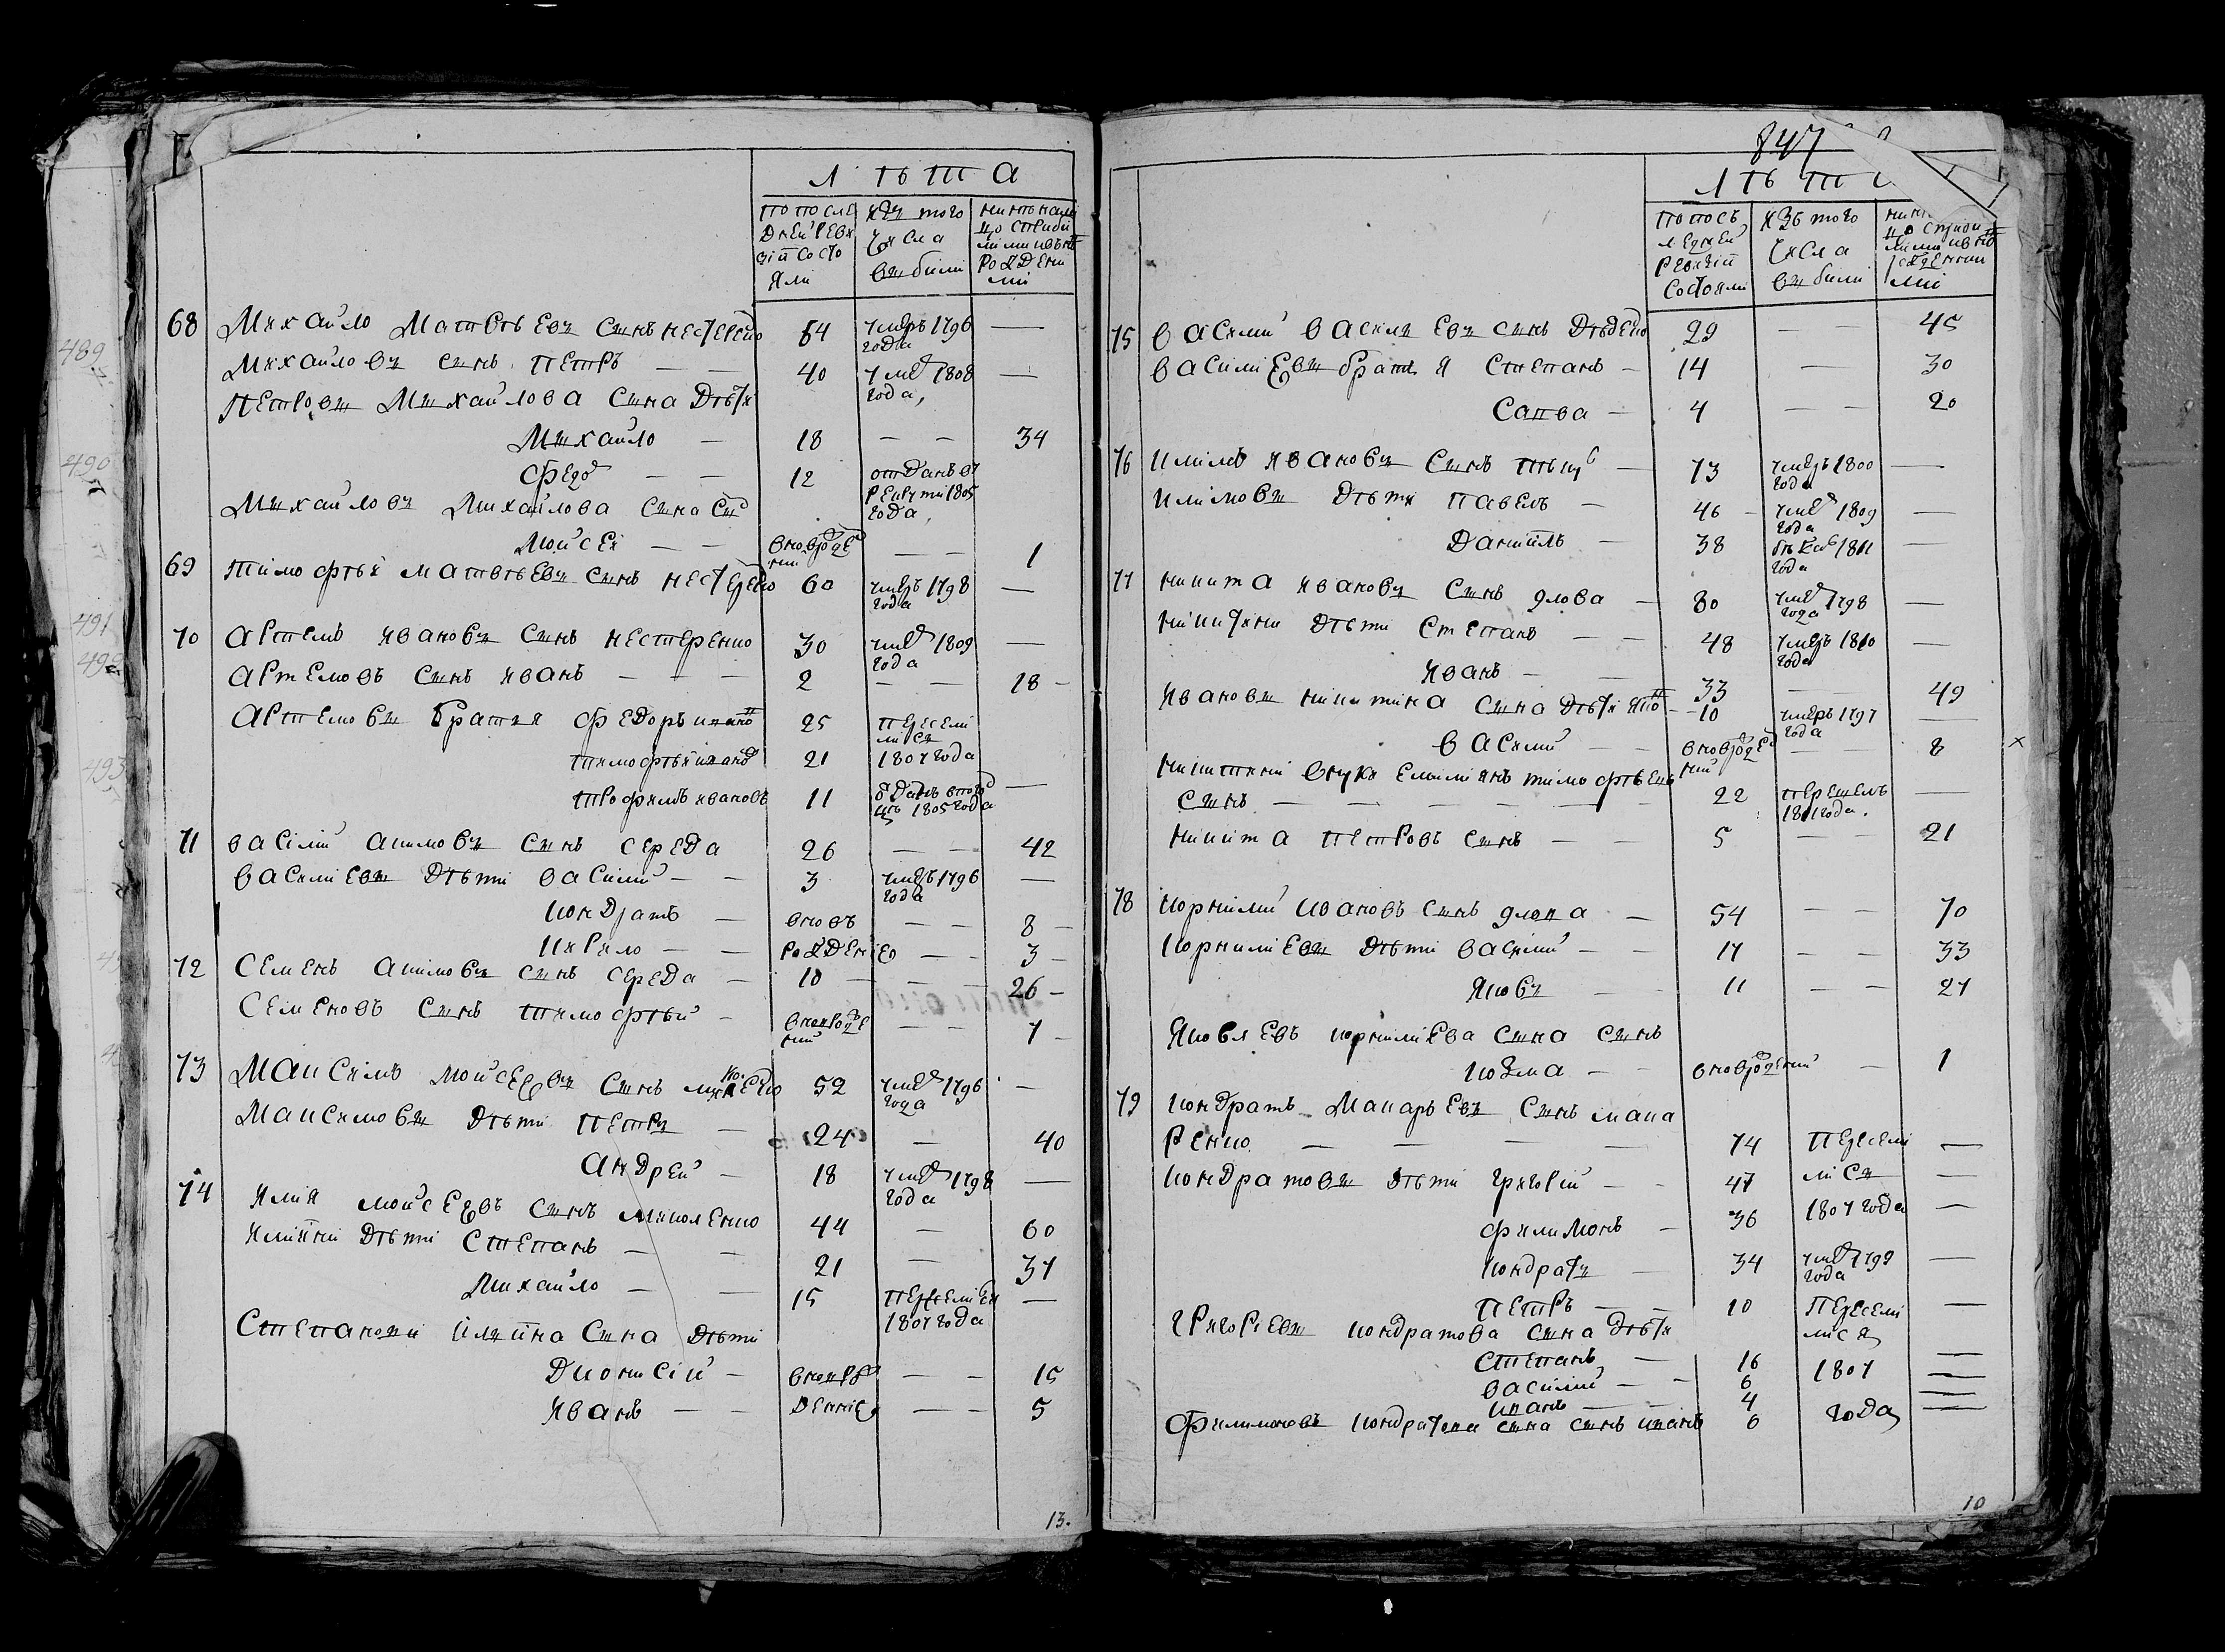 Лѣта
по после
дней реви
зіи состо
яли
изъ того
числа
выбыли
ро жд ени
ми
68 Михайло Матвѣевъ сынъ нестеренко 64 умеръ 1796 года —
Михайловъ сынъ Петръ — — 40 умер 1808 года, —
Петровы Михайлова сына дѣти
Михайло — 18 — — 34
Федор — — 12 отданъ въ рекруты 1805 года,
Михайловъ Михайлова сына сын
Мойсеи — — вновврожденни — — 1
69 Тимофѣй Матвѣевъ сынъ нестеренко 60 умеръ 1798 года —
70 Артемъ ивановъ сынъ нестеренко 30 умер 1809 года —
Артемовъ сынъ иванъ — — — 2 — — 18 —
Артемовы братия федоръ иванов 25 пересели лися
тимофѣй иванов 21 1807 года
трофимъ ивановъ 11 1805 года —
71 василий акимовъ сынъ середа 26 — — 42
василиевы дѣти василий — — 3 умеръ 1796 года —
кондратъ — вновь — — 8 —
кирило — — рожденіео — — 3 —
72 семенъ акимовъ сынъ середа — 10 — — 26 —
семеновъ сынъ тимофѣй — вноврожде ний — — 7 —
73 Максимъ мойсеевъ сынъ 52 умер 1796 года —
Максимовы дѣти петръ — 24 — 40
андрей — 18 умер 1798 года —
74 илия мойсеевъ сынъ николенко 44 — 60
илиини дѣти степанъ — — 21 — 37
михайло — — 15 переселился 1807 года —
Степановы илиина сына дѣти
Дионисій — вноврож — — 15
иванъ — — дение — — 5
13.
847
Лѣт
по посъ
ледней
ревизіи
состояли
изъ того
числа
выбыли
75 василий василиевъ сынъ дѣденко 29 — — 45
василиевы братья степанъ — 14 — — 30
савва — 4 — — 20
76 климъ ивановъ сынъ — 73 умеръ 1800 года —
климовы дѣти павелъ — 46 — умер 1809 года —
даниилъ — 38 бѣжав 1811 года —
77 никита ивановъ сынъ — 80 умер 1798 года —
никитини дѣти степанъ — — 48 умеръ 1810 года —
иванъ — — 33 — 49
ивановы никитина сына дѣти яков — 10 умеръ 1797 года —
василий — — вноврожден ний — — 8 ×
никитини внуки емилиянъ тимофѣевъ
сынъ — — — — — 22 перешелъ 1811 года. —
никита петровъ сынъ — — 5 — 21
78 корнилий ивановъ сынъ — 54 — — 70
корнилиевы дѣти василий — — 17 — — 33
яковъ — — 11 — — 27
яковлевъ корнилиева сына сынъ
козма — — вноврождений — 1
79 кондратъ макарьевъ сынъ мака
ренко. — — — — 74 пересели —
кондратовы дѣти григорій — — 47 лися —
филимонъ — 36 1807 года —
кондратъ — 34 умер 1799 года —
петръ — — 10 пересели —
григориевы кондратова сына дѣти лися
степанъ — 16 1807 —
василий — — 6 —
иванъ — — 4 —
филимоновъ кондратова сына сынъ иванъ 6 года —
10